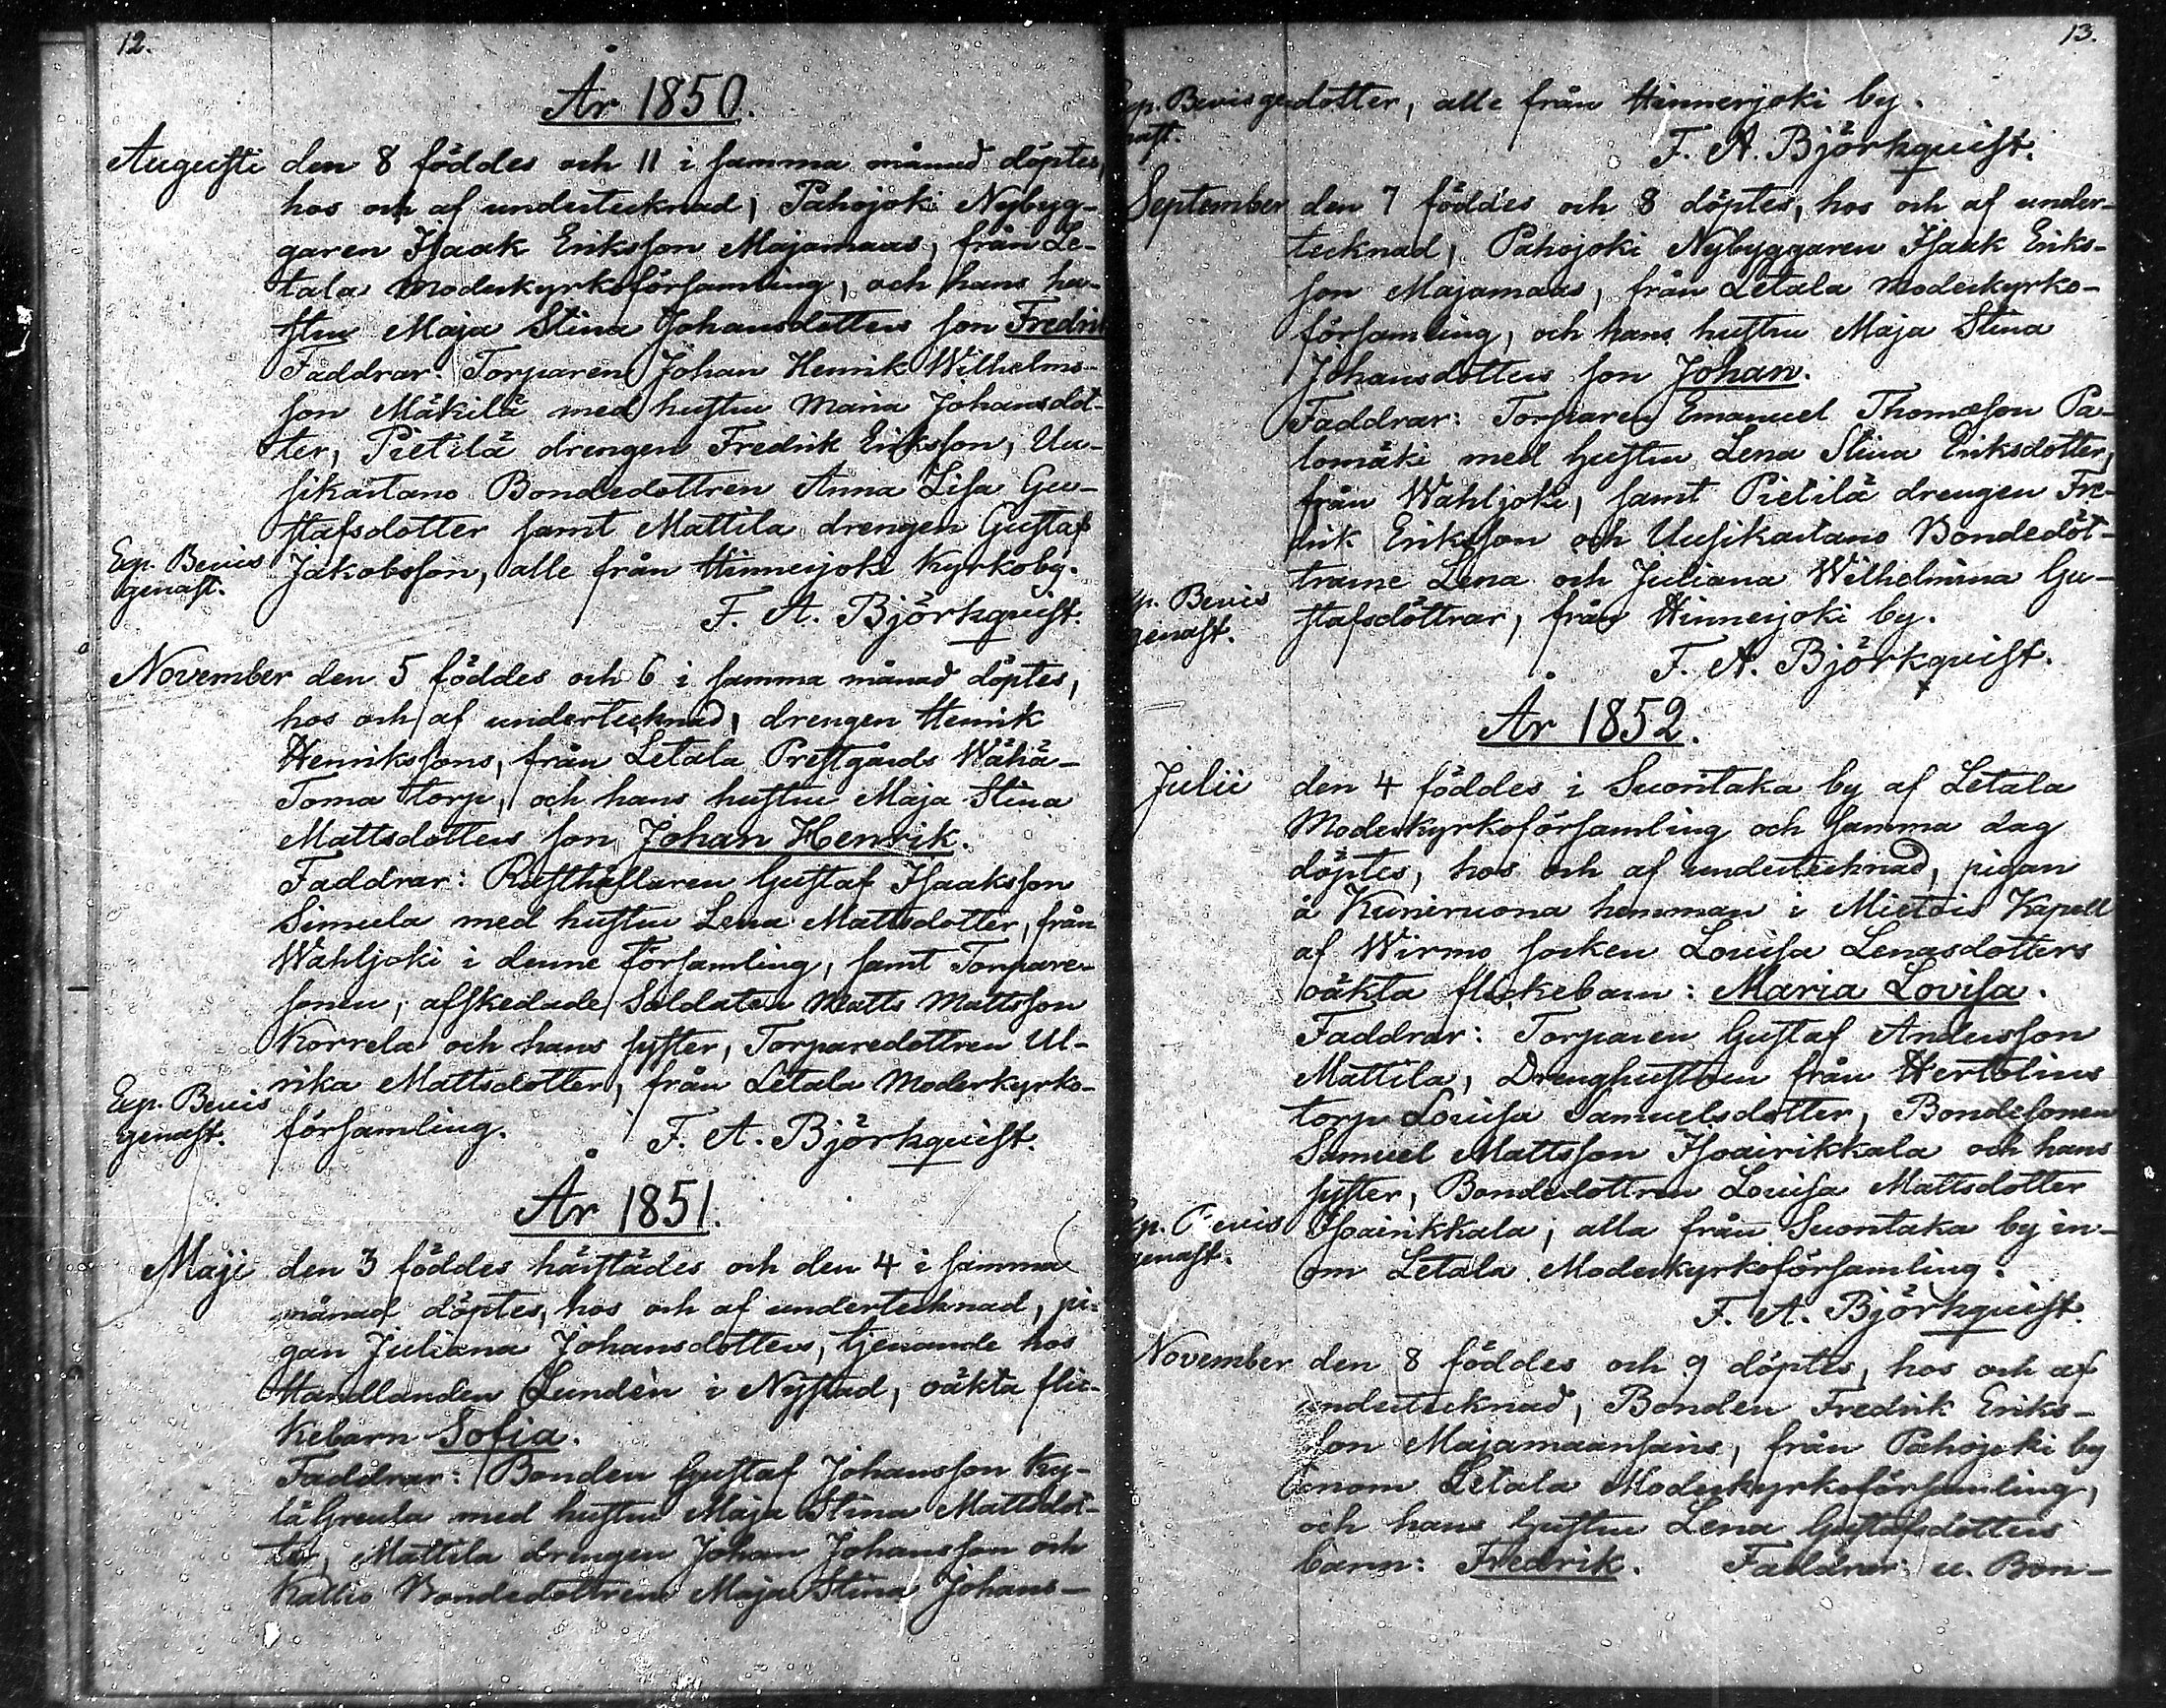 12.
År 1850.
Augusti den 8 föddes och 11 i samma månad döptes,
hos och af undertecknad, Pahojoki Nybyg-
garen Isaak Eriksson Majamaas, från Le-
tala Moderkyrkoförsamling, och hans hu-
stru Maja Stina Johansdotters son Fredrik
Faddrar: Torparen Johan Henrik Wilhelms-
son Mäkilä med hustru Maria Johansdot-
ter, Pietilä drengen Fredrik Eriksson, Uu-
sikartano Bondedottren Anna Lisa Gu-
stafsdotter samt Mattila drengen Gustaf
Exp. Bevis Jakobsson, alle från Hinnerjoki Kyrkoby.
genast.
F. A. Björkquist.
November den 5 föddes och 6 i samma månad döptes,
hos och af undertecknad, drengen Henrik
Henrikssons, från Letala Prestgårds Wähä-
Toma torp, och hans hustru Maja Stina
Mattsdotters son Johan Henrik.
Faddrar: Rusthållaren Gustaf Isaaksson
Simula med hustru Lena Mattsdotter, från
Wahljoki i denne församling, samt Torpare-
sonen, afskedade Soldaten Matts Mattsson
Korrela och hans syster, Torparedottren Ul-
rika Mattsdotter, från Letala Moderkyrko-
Exp. Bevis
genast. församling. F. A. Björkquist.
År 1851.
Maji den 3 föddes härstädes och den 4 i samma
månad döptes, hos och af undertecknad, pi-
gan Juliana Johansdotters, tjenande hos
Handlanden Lundén i Nystad, oäkta flic-
kebarn Sofia.
Faddrar: Bonden Gustaf Johansson Ky-
lä Greula med hustru Maja Stina Mattsdot-
ter, Mattila drengen Johan Johansson och
Kallio Bondedottren Maja Stina Johans-
13.
Exp. Bevis ge dotter, alle från Hinnerjoki by.
nast.
F. A. Björkquist.
September den 7 föddes och 8 döptes, hos och af under-
tecknad, Pahojoki Nybyggaren Isaak Eriks-
son Majamaas, från Letala Moderkyrko-
församling, och hans hustru Maja Stina
Johansdotters son Johan.
Faddrar: Torparen Emanuel Thomæson Pa-
lomäki med hustru Lena Stina Eriksdotter,
från Wahljoki, samt Pietilä drengen Fre-
drik Eriksson och Uusikartano Bondedöt-
trarne Lena och Juliana Wilhelmina Gu-
Exp. Bevis
genast. stafsdöttrar, från Hinnerjoki by.
F. A. Björkquist.
År 1852.
Julii den 4 föddes i Suontaka by af Letala
Moderkyrkoförsamling och samma dag
döptes, hos och af undertecknad, pigan
å Kuneruona hemman i Mietois Kapell
af Wirmo socken Lovisa Lenasdotters
oäkta flickebarn: Maria Lovisa.
Faddrar: Torparen Gustaf Andersson
Mattila, Drenghustrun från Hertolins
torp Lovisa Samuelsdotter, Bondesonen
Samuel Mattsson Isoairikkala och hans
syster, Bondedottren Lovisa Mattsdotter
Exp. Bevis Isoairikkala, alla från Suontaka by in-
genast. om Letala Moderkyrkoförsamling.
F. A. Björkquist.
November den 8 föddes och 9 döptes, hos och af
undertecknad, Bonden Fredrik Eriks-
son Majamaanpäins, från Pahojoki by
inom Letala Moderkyrkoförsamling,
och hans hustru Lena Gustafsdotters
barn: Fredrik. Faddrar: u. Bon-